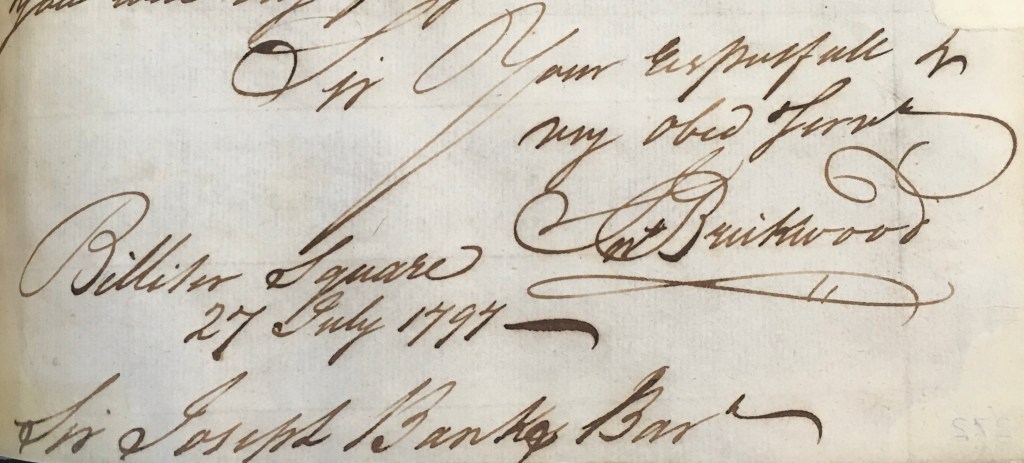 Sir Your respectfull &
my obed Servt
Jn° Brickwood
Billiter Square
27 July 1797
Sir Joseph Banks Bart